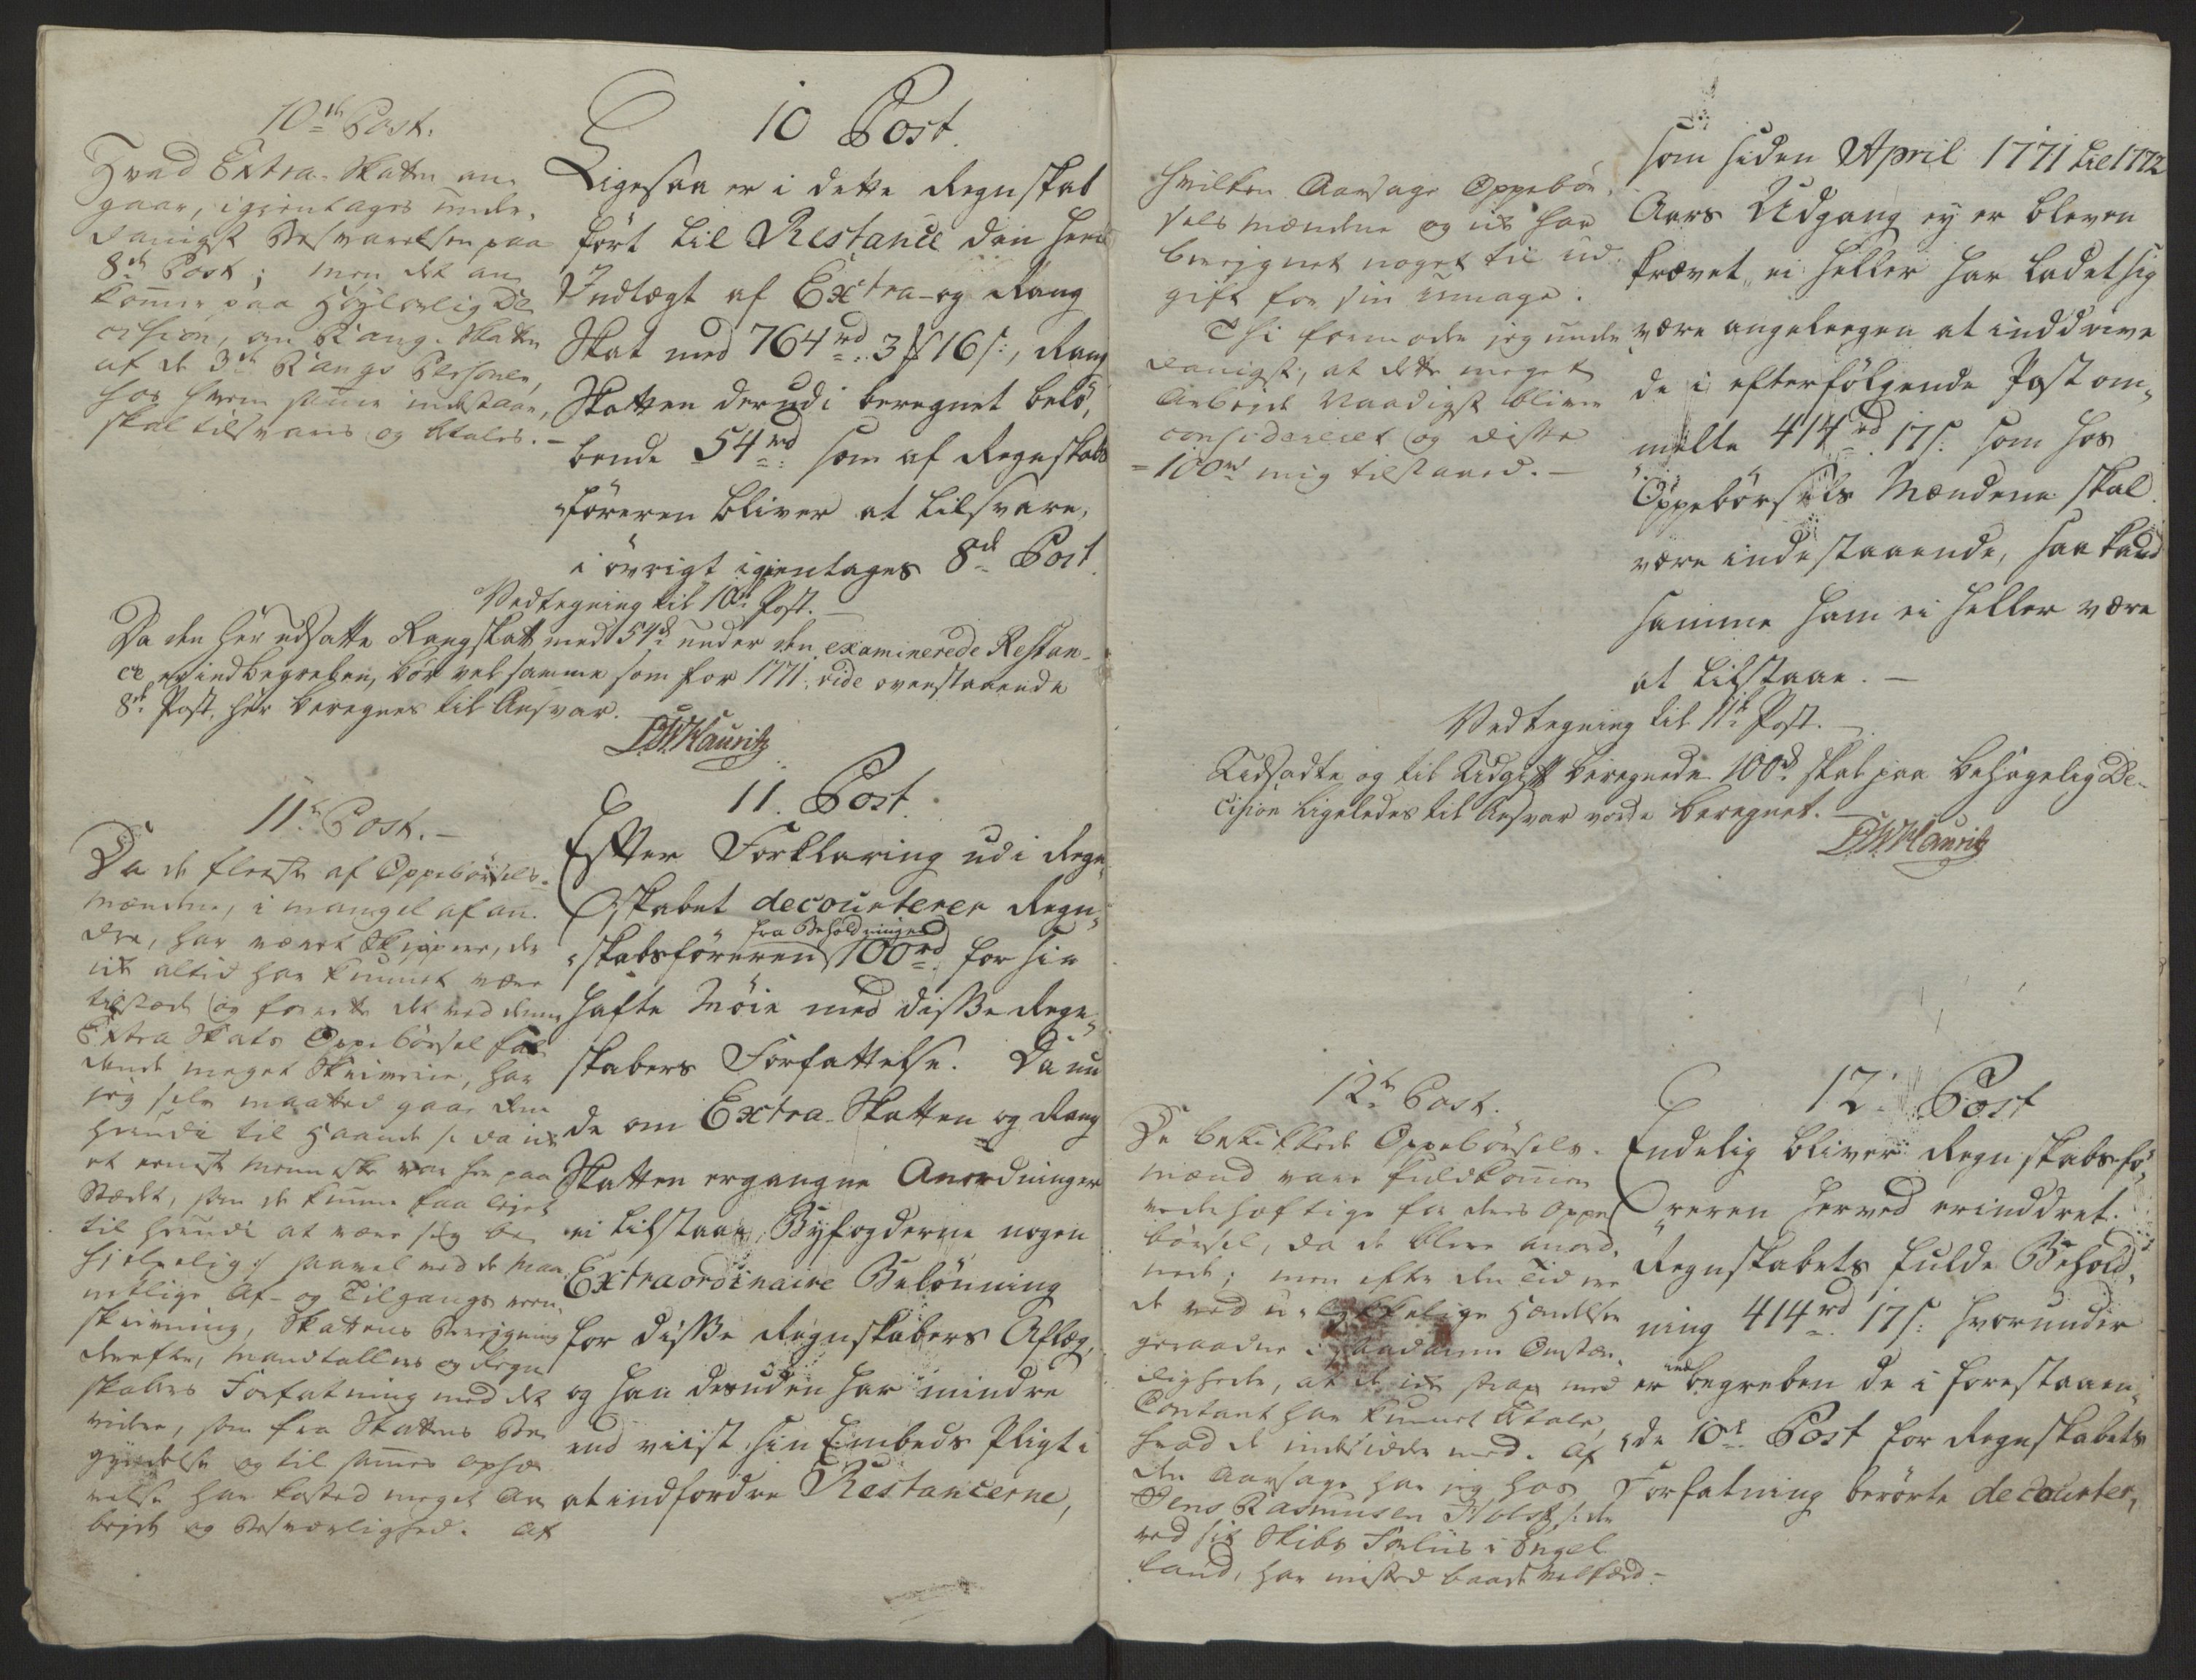 10de Post.
Hvad Extra-Skatten an-
gaar, igientages under-
danigst Besvarelsen paa
8de Post; men det an-
kommer paa Höylovlig De-
cision, om Rang-Skatten
af de 3de Rangs Personer,
hos hvem samme indestaar,
skal tilsvares og betales. –
10 Post.
Ligesaa er i dette Regnskab
fört til Restance den heri
Indlagt af Extra- og Rang
Skat med 764 rd 3 ff 16 s:, Rang
Skatten derudi beregnet belö-
bende 54 rd: som af Regnskabs
föreren bliver at tilsvare,
i övrigt igientages 8de Post.
Vedtegning til 10de Post. –
Da den her udsatte Rangskatt med 54 rd under den examinerede Restan-
ce er indbegreben, bör vel samme som for 1771, vide ovenstaaende
8de Post, her beregnes til Ansvar.
Mauritz
11te Post. –
Da de fleeste af Oppebörsels-
mændene, i mangel af an-
dre, har været Skippere, der
ikke altid har kunnet være
tilstæde og forrette det ved denne
Extra Skats Oppebörsel fal-
dende meget Skriverie, har
jeg selv maatted gaae dem
herudi til Haande /: da ikke
et eeneste Menniske var her paa
Stædet, som de kunne faa leyet
til herudi at være sig be-
hielpelig :/ saavel med de Maa-
netlige Af- og Tilgangs
skrivning, Skattens Beregning
derefter, Mandtallers og Regn-
skabers Forfatning med det
videre, som fra Skattens Be-
gyndelse og til sammes ophæ-
velse har kosted meget Ar-
beyde og Besværlighed. Af
11. Post.
Efter Forklaring udi Regn-
skabet decourterer Regn-
fra Beholdningen
skabsföreren 100 rd for sin
hafte Möie med disse Regn-
skabers Forfattelse. Da nu
de om Extra-Skatten og Rang
Skatten ergangne Anordninger
ei tilstaar Byfogderne nogen
Extraordinaire Belönning
for disse Regnskabers Aflæg,
og han desuden har mindre
end viist sin Embeds Pligt i
at indfordre Restancerne,
hvilken Aarsage Oppebör-
sels mændene og ikke har
beregnet noget til Ud-
gift for sin Umage.
Thi formoder jeg under-
danigst, at dette meget
Arbeyde Naadigst bliver
considereret og disse
100 rd mig tilstaaed. –
som siden April 1771 til 1772
Aars Udgang ey er bleven
krævet, ei heller har ladet sig
være angelegen at inddrive
de i efterfölgende Post om-
melte 414 rd. 17 s: som hos
Oppebörsels Mændene skal
være indestaaende, saa kand
samme ham ei heller være
at tilstaae. –
Vedtegning til 11te Post. –
Udsadte og til Udgift beregnede 100 rd skal paa behagelig De-
cision ligeledes til Ansvar vorde beregnet.
Mauritz
12te Post.
De beskikkede Oppebörsels-
mænd vare fuldkommen
vederhæftige for deres Oppe-
börsel, da de bleve anord-
nede; men efter den Tid ere
de ved ulykkelige Hændelser
geraadne i saadanne Omstæn-
digheder, at de ikke strax med
Contant har kunnet betale,
hvad de indesidder med. Af
den Aarsage har jeg hos
Jens Rasmusen Holst /: der
ved sit Skibs Forliis i Engel-
land, har misted baade Velfærd
12. Post
Endelig bliver Regnskabsfö-
reren herved erinddret.
Regnskabets fulde Behold-
ning 414 rd 17 s: hvorunder
er indbegreben de i forestaaen-
de 10de Post for Regnskabets
Forfatning berörte decourter,